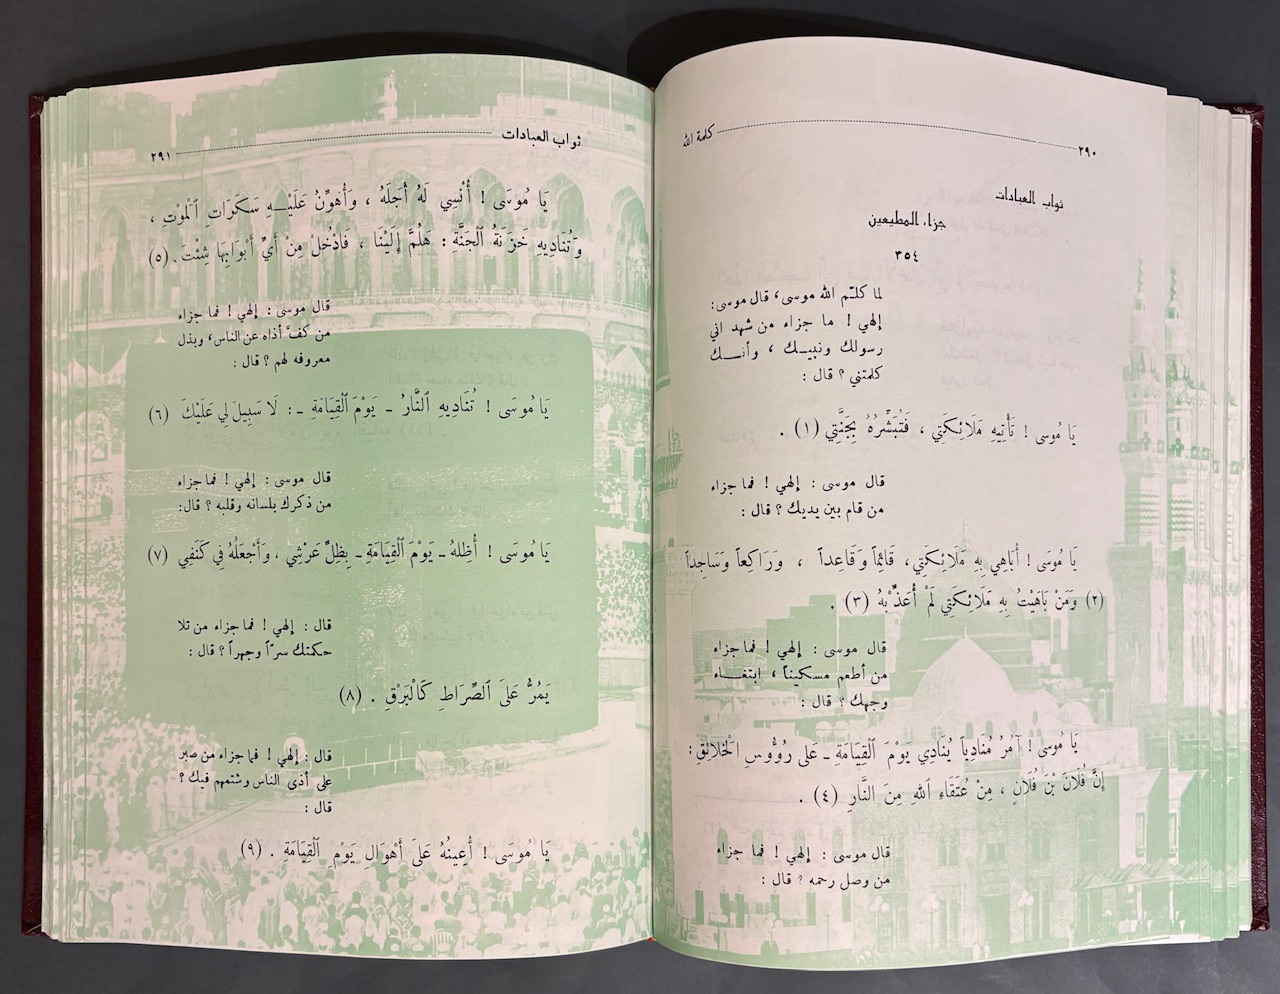 ٢٩٠ كلمة الله
ثواب العبادات
جزاء المطيعين
٣٥٤
لما كلّم الله موسى، قال موسى:
إلهي ! ما جزاء من شهد اني
رسولك ونبيك ، وأنك
كلمتني ؟ قال :
يَا مُوسى ! تَأْتِيهِ مَلَائِكَتِي ، فَتُبَشِّرُهُ بِجَنَّتِي (١) .
قال موسى : إلهي ! فما جزاء
من قام بين يديك ؟ قال :
يَا مُوسَى ! أُبَاهِي بِهِ مَلَائِكَتِي، قَائِماً وَقَاعِداً ، وَرَاكِعاً وَسَاجِداً
(٢) وَمَنْ بَاهَيْتُ بِهِ مَلَائِكَتِي لَمْ أُعَذِّبْهُ (٣) .
قال موسى : إلهي ! فما جزاء
من أطعم مسكيناً ، ابتغاء
وجهك ؟ قال :
يَا مُوسَى ! آمُرُ مُنَادِياً يُنَادِي يَوْمَ اَلْقِيَامَةِ - عَلَى رُؤُوسِ الْخَلَائِقِ :
إِنَّ فُلَانَ بْنَ فُلَانٍ ، مِنْ عُتَقَاءِ اَللهِ مِنَ النَّارِ (٤) .
قال موسى : إلهي ! فما جزاء
من وصل رحمه ؟ قال :
ثواب العبادات ٢٩١
يَا مُوسَى ! أُنْسِي لَهُ أَجَلَهُ ، وَأُهَوِّنُ عَلَيْهِ سَكَرَاتِ اَلْمَوْتِ ،
وَتُنَادِيهِ خَزَنَةُ اَلْجَنَّةِ : هَلُمَّ إِلَيْنَا ، فَادْخُلْ مِنْ أَيِّ أَبْوَابِهَا شِئْتَ . (٥)
قال موسى : إلهي ! فما جزاء
من كفّ أذاه عن الناس، وبذل
معروفه لهم ؟ قال :
يَا مُوسَى ! تُنَادِيهِ اَلنَّارُ - يَوْمَ اَلْقِيَامَةِ - : لَا سَبِيلَ لِي عَلَيْكَ (٦)
قال موسى : إلهي ! فما جزاء
من ذكرك بلسانه وقلبه ؟ قال:
يَا مُوسَى ! أُظِلُّهُ - يَوْمَ اَلْقِيَامَةِ - بِظِلِّ عَرْشِي ، وَأَجْعَلُهُ فِي كَنَفِي (٧)
قال : إلهي ! فما جزاء من تلا
حكمتك سرّاً وجهراً ؟ قال :
يَمُرُّ عَلَى اَلصِّرَاطِ كَالْبَرْقِ . (٨)
قال : إلهي ! فما جزاء من صبر
على أذى الناس وشتمهم فيك ؟
قال :
يَا مُوسَى ! أُعِينُهُ عَلَى أَهْوَالِ يَوْمِ اَلْقِيَامَةِ . (٩)